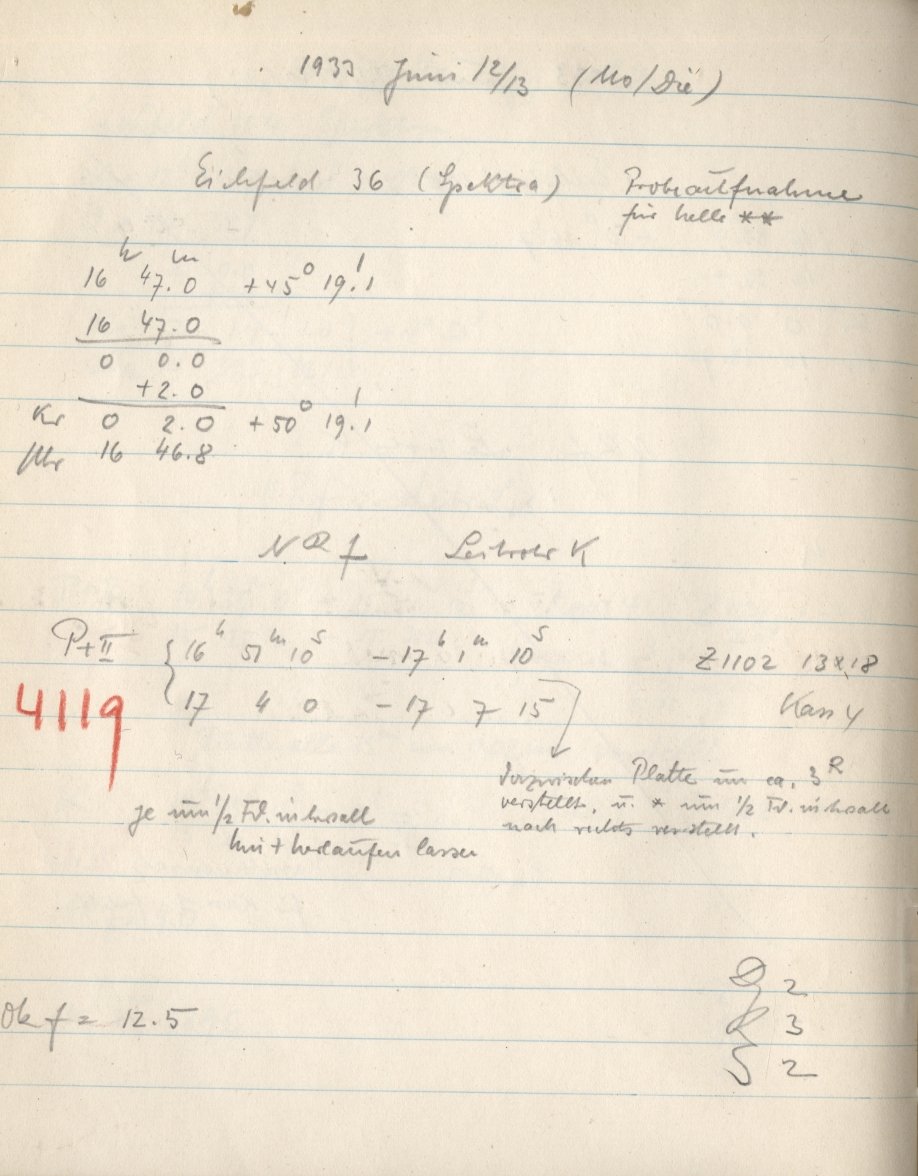 1933 Juni 12/13 (Mo/Die)
Eichfeld 36 (Spektra) Probeaufnahme
für helle **
16 h 47. m 0 +45° 19.'1
16 47.0
0 0.0
+2.0
Kr 0 2.0 +50° 19.'1
Uhr 16 46.8
Leitrohr K
P+II { 16 h 51 m 10 s - 17 h 1 m 10 s Z1102 13x18
4119 17 4 0 - 17 7 15 Kass 4
Inzwischen Platte um ca. 3 R
verstellt, u. * um 1/2 Fd. intervall
nach rechts verstellt.
je um 1/2 Fd. intervall
hin + herlaufen lassen
D 2
R 3
S 2
Ok f = 12.5